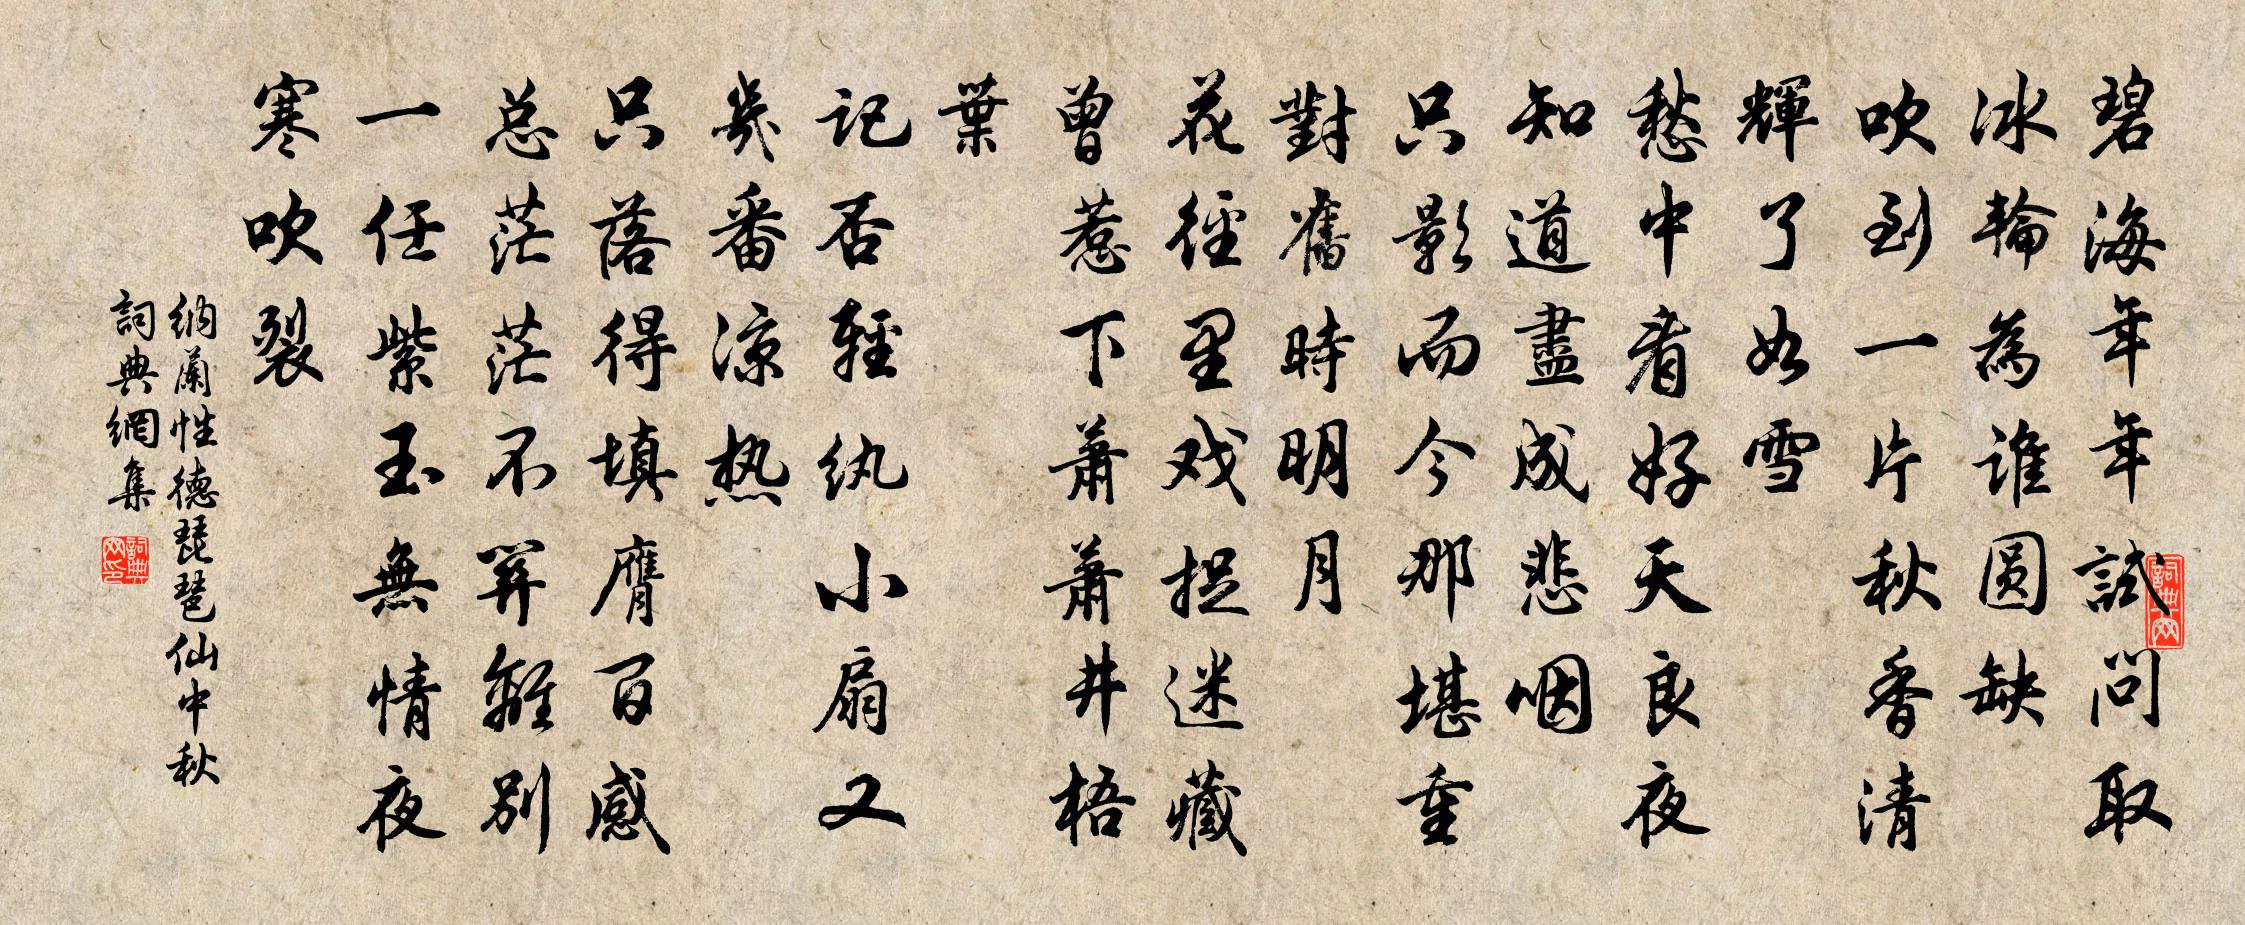 碧海年年試問取
冰輪為誰圆缺
吹到一片秋香清
輝了如雪
愁中看好天良夜
知道盡成悲咽
只影而今那堪重
對舊時明月
花徑里戏捉迷藏
曾惹下蕭蕭井梧
葉
記否輕纨小扇又
幾番凉热
只落得填膺百感
总茫茫不關離別
一任紫玉無情夜
寒吹裂
納蘭性德琵琶仙中秋
詞典網集
詞典网
詞典网印